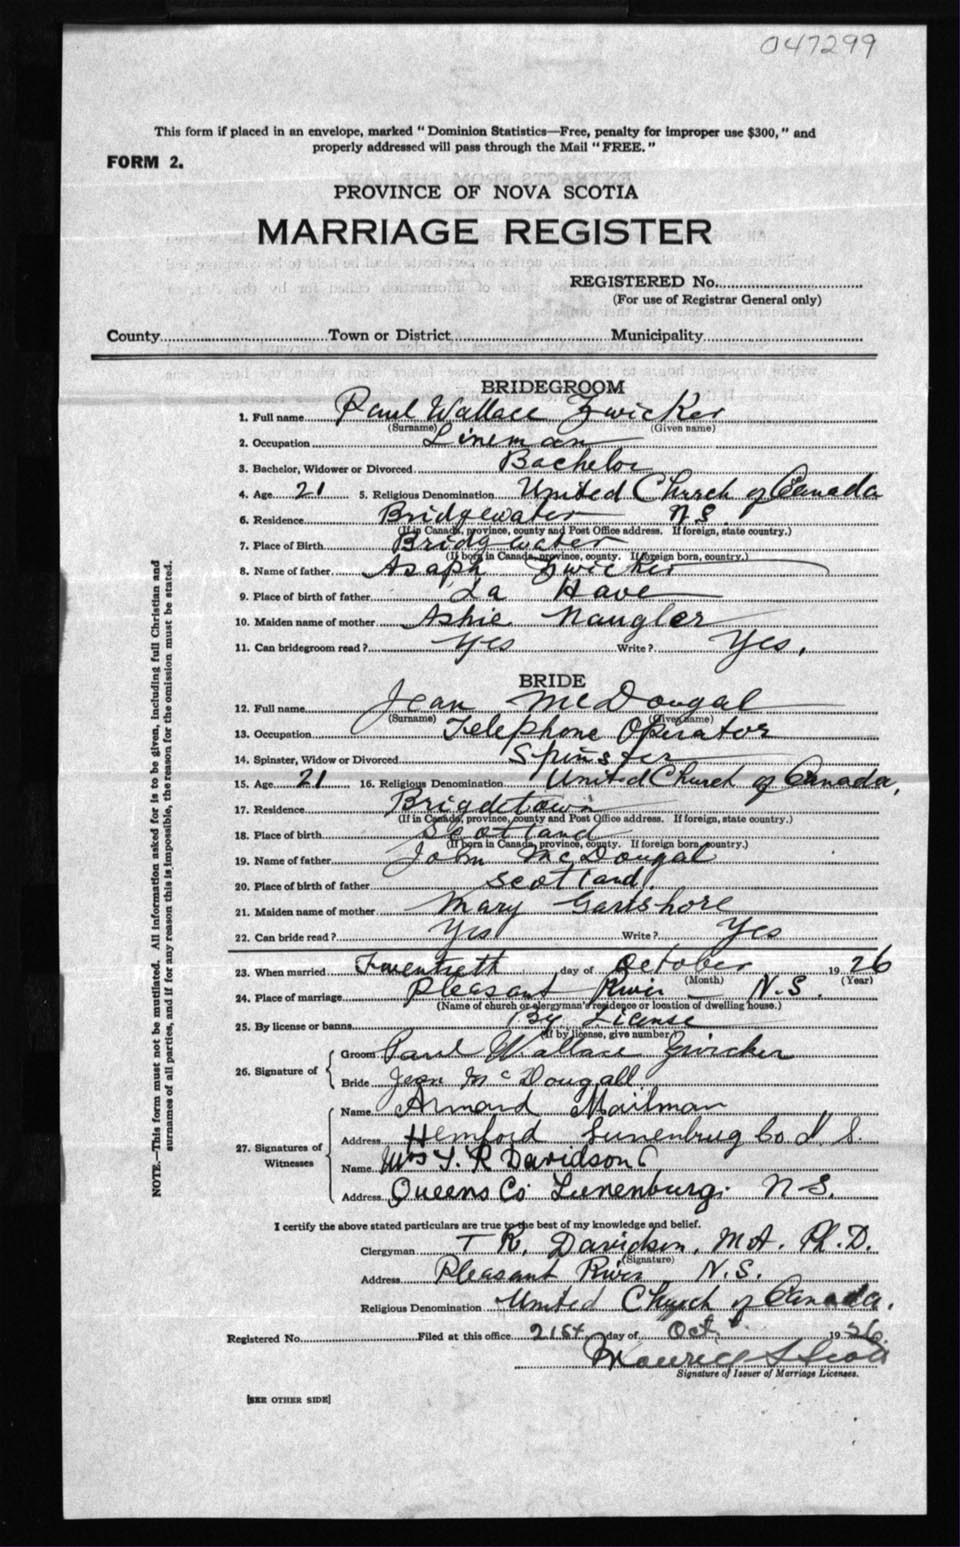 047299
This form if placed in an envelope, marked "Dominion Statistics—Free, penalty for improper use $300," and
properly addressed will pass through the Mail "FREE."
FORM 2.
PROVINCE OF NOVA SCOTIA
MARRIAGE REGISTER
REGISTERED No.
(For use of Registrar General only)
County Town or District Municipality
BRIDEGROOM
1. Full name Paul Wallace Zwicker
(Surname) (Given name)
2. Occupation Lineman
3. Bachelor, Widower or Divorced Bachelor
4. Age 21 5. Religious Denomination United Church of Canada
6. Residence Bridgewater N.S.
(If in Canada, province, county and Post Office address. If foreign, state country.)
7. Place of Birth Bridgwater
(If born in Canada, province, county. If foreign born, country.)
8. Name of father Asaph Zwicker
9. Place of birth of father La Have
10. Maiden name of mother Ashie Naugler
11. Can bridegroom read? Yes Write? Yes.
BRIDE
12. Full name Jean McDougal
(Surname) (Given name)
13. Occupation Telephone Operator
14. Spinster, Widow or Divorced Spinster
15. Age 21 16. Religious Denomination United Church of Canada,
17. Residence Brigdetown
(If in Canada, province, county and Post Office address. If foreign, state country.)
18. Place of birth Scotland
(If born in Canada, province, county. If foreign born, country.)
19. Name of father John McDougal
20. Place of birth of father Scotland.
21. Maiden name of mother Mary Gartshore
22. Can bride read? Yes Write? Yes
23. When married Twentieth day of October 1926
(Month) (Year)
24. Place of marriage Pleasant River N.S.
(Name of church or clergyman's residence or location of dwelling house.)
25. By license or banns By License
(If by license, give number)
26. Signature of Groom Paul Wallace Zwicker
Bride Jean McDougall
27. Signatures of Witnesses Name Armand Mailman
Address Hemford Lunenbrug Co N.S.
Name Mrs T. R Davidson
Address Queens Co Lunenburg. N-S.
I certify the above stated particulars are true to the best of my knowledge and belief.
Clergyman T R. Davidson, M.A. Ph.D.
(Signature)
Address Pleasant River N.S.
Religious Denomination United Church of Canada.
Registered No. Filed at this office 21st day of Oct 1926
Maurice S Scott
Signature of Issuer of Marriage Licenses.
[SEE OTHER SIDE]
NOTE.—This form must not be mutilated. All information asked for is to be given, including full Christian and
surnames of all parties, and if for any reason this is impossible, the reason for the omission must be stated.